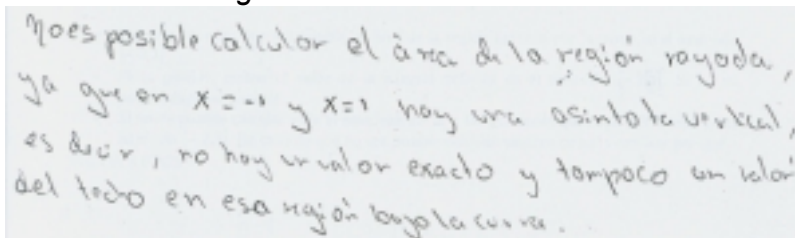 No es posible calcular el área de la región rayada,
ya que en x = -1 y x = 1 hay una asíntota vertical,
es decir, no hay un valor exacto y tampoco un valor
del techo en esa región bajo la curva.